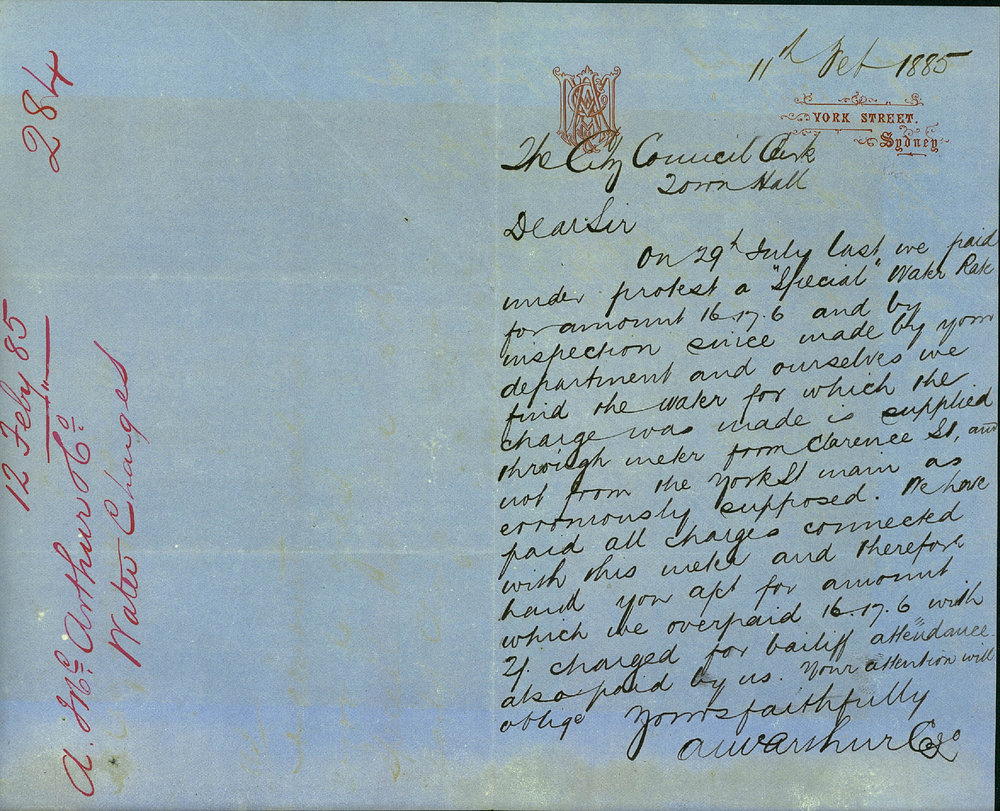 284
12 Feby 85
A. McArthur & Co
Water Charges
11th Feb 1885
YORK STREET.
Sydney
The City Council Clerk
Town Hall
Dear Sir
On 29th July last we paid
under protest a "Special" Water Rate
for amount 16.17.6 and by
inspection since made by your
department and ourselves we
find the water for which the
charge was made is supplied
through meter from Clarence St, and
not from the York St main as
erroniously supposed. We have
paid all charges connected
with this meter and therefore
hand you a/c for amount
which we overpaid 16.17.6 with
2/. charged for bailiff attendance
also paid by us. Your attention will
oblige Yours faithfully
A McArthur & Co